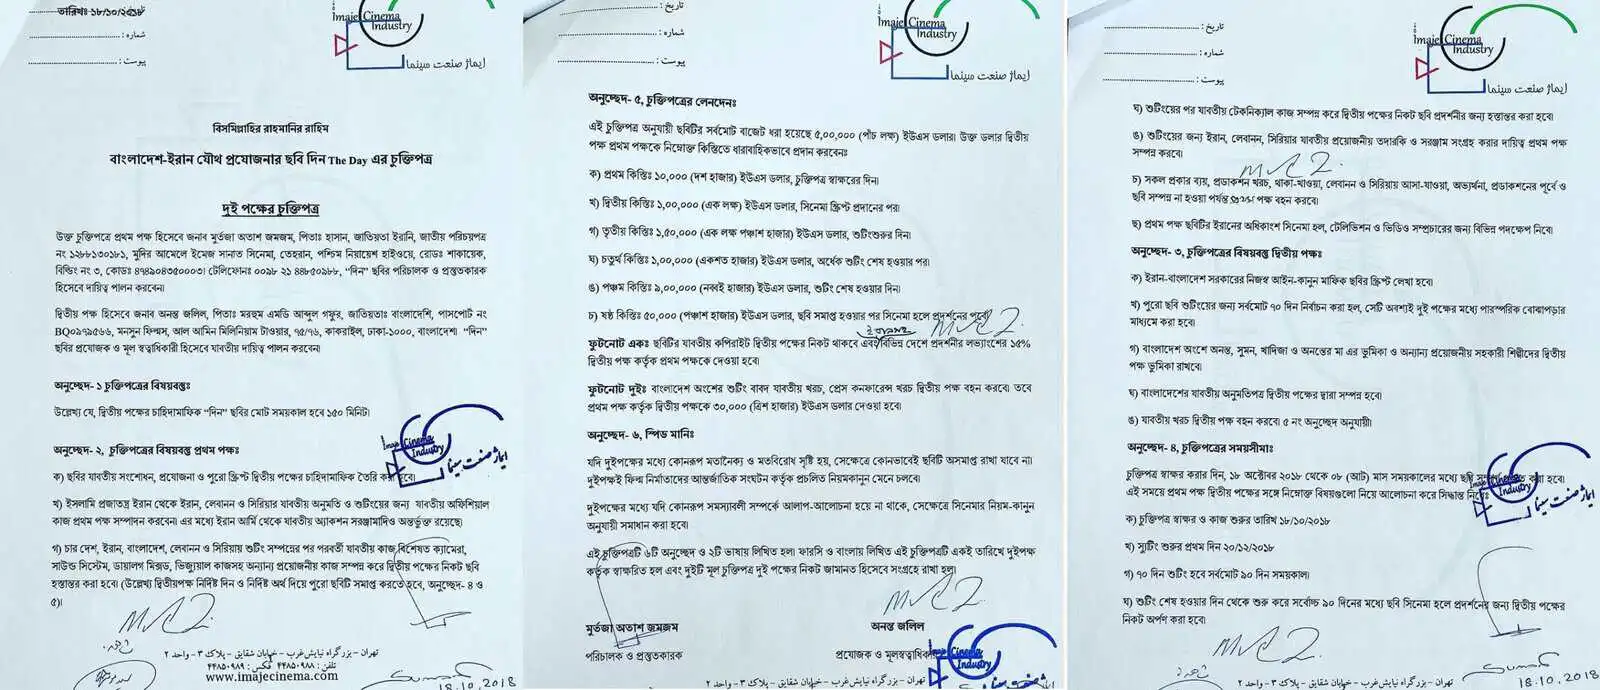 তারিখঃ ১৮/১০/২০১৮
شماره :
پیوست :
Imaje Cinema
Industry
ایماژ صنعت سینما
বিসমিল্লাহির রাহমানির রাহিম
বাংলাদেশ-ইরান যৌথ প্রযোজনার ছবি দিন The Day এর চুক্তিপত্র
দুই পক্ষের চুক্তিপত্র
উক্ত চুক্তিপত্রে প্রথম পক্ষ হিসেবে জনাব মুর্তজা অতাশ জমজম, পিতাঃ হাসান, জাতিয়তা ইরানি, জাতীয় পরিচয়পত্র
নং ১২৮৮১৩০১৮১, মুদির আমেলে ইমেজ সানাত সিনেমা, তেহরান, পশ্চিম নিয়ায়েশ হাইওয়ে, রোডঃ শাকায়েক,
বিল্ডিং নং ৩, কোডঃ ৪৭৪৯০৪৩৫০০০৩। টেলিফোনঃ ০০৯৮ ২১ ৪৪৮৫০৯৮৮, “দিন” ছবির পরিচালক ও প্রস্তুতকারক
হিসেবে দায়িত্ব পালন করবেন।
দ্বিতীয় পক্ষ হিসেবে জনাব অনন্ত জলিল, পিতাঃ মরহুম এমডি আব্দুল গফুর, জাতিয়তাঃ বাংলাদেশি, পাসপোর্ট নং
BQ০৯৭৯৫৬৬, মনসুন ফিল্মস, আল আমিন মিলিনিয়াম টাওয়ার, ৭৫/৭৬, কাকরাইল, ঢাকা-১০০০, বাংলাদেশ। “দিন”
ছবির প্রযোজক ও মূল স্বত্বাধিকারী হিসেবে যাবতীয় দায়িত্ব পালন করবেন।
অনুচ্ছেদ- ১ চুক্তিপত্রের বিষয়বস্তুঃ
উল্লেখ্য যে, দ্বিতীয় পক্ষের চাহিদামাফিক “দিন” ছবির মোট সময়কাল হবে ১৫০ মিনিট।
অনুচ্ছেদ- ২, চুক্তিপত্রের বিষয়বস্তু প্রথম পক্ষঃ
ক) ছবির যাবতীয় সংশোধন, প্রযোজনা ও পুরো স্ক্রিপ্ট দ্বিতীয় পক্ষের চাহিদামাফিক তৈরি করা হবে।
খ) ইসলামি প্রজাতন্ত্র ইরান থেকে ইরান, লেবানন ও সিরিয়ার যাবতীয় অনুমতি ও শুটিংয়ের জন্য যাবতীয় অফিশিয়াল
কাজ প্রথম পক্ষ সম্পাদন করবেন। এর মধ্যে ইরান আর্মি থেকে যাবতীয় অ্যাকশন সরঞ্জামাদিও অন্তর্ভুক্ত রয়েছে।
গ) চার দেশ, ইরান, বাংলাদেশ, লেবানন ও সিরিয়ায় শুটিং সম্পন্নের পর পরবর্তী যাবতীয় কাজ বিশেষত ক্যামেরা,
সাউন্ড সিস্টেম, ডায়ালগ মিক্সড, ভিজ্যুয়াল কাজসহ অন্যান্য প্রয়োজনীয় কাজ সম্পন্ন করে দ্বিতীয় পক্ষের নিকট ছবি
হস্তান্তর করা হবে। (উল্লেখ্য দ্বিতীয়পক্ষ নির্দিষ্ট দিন ও নির্দিষ্ট অর্থ দিয়ে পুরো ছবিটি সমাপ্ত করতে হবে, অনুচ্ছেদ- ৪ ও
৫)।
Imaje Cinema
Industry
ایماژ صنعت سینما
تهران - بزرگراه نیایش غرب - خیابان شقایق - پلاک ۳ - واحد ۲
تلفن : ۴۴۸۵۰۹۸۸ فکس : ۴۴۸۵۰۹۸۹
www.imajecinema.com
18.10.2018
تاریخ :
شماره :
پیوست :
Imaje Cinema
Industry
ایماژ صنعت سینما
অনুচ্ছেদ- ৫, চুক্তিপত্রের লেনদেনঃ
এই চুক্তিপত্র অনুযায়ী ছবিটির সর্বমোট বাজেট ধরা হয়েছে ৫,০০,০০০ (পাঁচ লক্ষ) ইউএস ডলার। উক্ত ডলার দ্বিতীয়
পক্ষ প্রথম পক্ষকে নিম্নোক্ত কিস্তিতে ধারাবাহিকভাবে প্রদান করবেনঃ
ক) প্রথম কিস্তিঃ ১০,০০০ (দশ হাজার) ইউএস ডলার, চুক্তিপত্র স্বাক্ষরের দিন।
খ) দ্বিতীয় কিস্তিঃ ১,০০,০০০ (এক লক্ষ) ইউএস ডলার, সিনেমা স্ক্রিপ্ট প্রদানের পর।
গ) তৃতীয় কিস্তিঃ ১,৫০,০০০ (এক লক্ষ পঞ্চাশ হাজার) ইউএস ডলার, শুটিংশুরুর দিন।
ঘ) চতুর্থ কিস্তিঃ ১,০০,০০০ (একশত হাজার) ইউএস ডলার, অর্ধেক শুটিং শেষ হওয়ার পর।
ঙ) পঞ্চম কিস্তিঃ ৯,০০,০০০ (নব্বই হাজার) ইউএস ডলার, শুটিং শেষ হওয়ার দিন।
চ) ষষ্ঠ কিস্তিঃ ৫০,০০০ (পঞ্চাশ হাজার) ইউএস ডলার, ছবি সমাপ্ত হওয়ার পর সিনেমা হলে প্রদর্শনের পূর্বে।
ফুটনোট একঃ ছবিটির যাবতীয় কপিরাইট দ্বিতীয় পক্ষের নিকট থাকবে এবং বিভিন্ন দেশে প্রদর্শনীর লভ্যাংশের ১৫%
দ্বিতীয় পক্ষ কর্তৃক প্রথম পক্ষকে দেওয়া হবে।
ফুটনোট দুইঃ বাংলাদেশ অংশের শুটিং বাবদ যাবতীয় খরচ, প্রেস কনফারেন্স খরচ দ্বিতীয় পক্ষ বহন করবে। তবে
প্রথম পক্ষ কর্তৃক দ্বিতীয় পক্ষকে ৩০,০০০ (ত্রিশ হাজার) ইউএস ডলার দেওয়া হবে।
অনুচ্ছেদ- ৬, স্পিড মানিঃ
যদি দুইপক্ষের মধ্যে কোনরূপ মতানৈক্য ও মতবিরোধ সৃষ্টি হয়, সেক্ষেত্রে কোনভাবেই ছবিটি অসমাপ্ত রাখা যাবে না।
দুইপক্ষই ফিল্ম নির্মাতাদের আন্তর্জাতিক সংঘটন কর্তৃক প্রচলিত নিয়মকানুন মেনে চলবে।
দুইপক্ষের মধ্যে যদি কোনরূপ সমস্যাবলী সম্পর্কে আলাপ-আলোচনা হয়ে না থাকে, সেক্ষেত্রে সিনেমার নিয়ম-কানুন
অনুযায়ী সমাধান করা হবে।
এই চুক্তিপত্রটি ৬টি অনুচ্ছেদ ও ২টি ভাষায় লিখিত হল। ফারসি ও বাংলায় লিখিত এই চুক্তিপত্রটি একই তারিখে দুইপক্ষ
কর্তৃক স্বাক্ষরিত হল এবং দুইটি মূল চুক্তিপত্র দুই পক্ষের নিকট জামানত হিসেবে সংগ্রহে রাখা হল।
মুর্তজা অতাশ জমজম
অনন্ত জলিল
পরিচালক ও প্রস্তুতকারক
প্রযোজক ও মূলস্বত্বাধিকারী
Imaje Cinema
Industry
تهران - بزرگراه نیایش غرب - خیابان شقایق - پلاک ۳ - واحد ۲
تاریخ :
شماره :
پیوست :
Imaje Cinema
Industry
ایماژ صنعت سینما
ঘ) শুটিংয়ের পর যাবতীয় টেকনিক্যাল কাজ সম্পন্ন করে দ্বিতীয় পক্ষের নিকট ছবি প্রদর্শনীর জন্য হস্তান্তর করা হবে।
ঙ) শুটিংয়ের জন্য ইরান, লেবানন, সিরিয়ার যাবতীয় প্রয়োজনীয় তদারকি ও সরঞ্জাম সংগ্রহ করার দায়িত্ব প্রথম পক্ষ
সম্পন্ন করবে।
চ) সকল প্রকার ব্যয়, প্রডাকশন খরচ, থাকা-খাওয়া, লেবানন ও সিরিয়ায় আসা-যাওয়া, অভ্যর্থনা, প্রডাকশনের পূর্বে ও
ছবি সম্পন্ন না হওয়া পর্যন্ত প্রথম পক্ষ বহন করবে।
ছ) প্রথম পক্ষ ছবিটির ইরানের অধিকাংশ সিনেমা হল, টেলিভিশন ও ভিডিও সম্প্রচারের জন্য বিভিন্ন পদক্ষেপ নিবে।
অনুচ্ছেদ- ৩, চুক্তিপত্রের বিষয়বস্তু দ্বিতীয় পক্ষঃ
ক) ইরান-বাংলাদেশ সরকারের নিজস্ব আইন-কানুন মাফিক ছবির স্ক্রিপ্ট লেখা হবে।
খ) পুরো ছবি শুটিংয়ের জন্য সর্বমোট ৭০ দিন নির্বাচন করা হল, সেটি অবশ্যই দুই পক্ষের মধ্যে পারস্পরিক বোঝাপড়ার
মাধ্যমে করা হবে।
গ) বাংলাদেশ অংশে অনন্ত, সুমন, খাদিজা ও অনন্তের মা এর ভুমিকা ও অন্যান্য প্রয়োজনীয় সহকারী শিল্পীদের দ্বিতীয়
পক্ষ ভুমিকা রাখবে।
ঘ) বাংলাদেশের যাবতীয় অনুমতিপত্র দ্বিতীয় পক্ষের দ্বারা সম্পন্ন হবে।
ঙ) যাবতীয় খরচ দ্বিতীয় পক্ষ বহন করবে। ৫ নং অনুচ্ছেদ অনুযায়ী।
অনুচ্ছেদ- ৪, চুক্তিপত্রের সময়সীমাঃ
চুক্তিপত্র স্বাক্ষর করার দিন, ১৮ অক্টোবর ২০১৮ থেকে ০৮ (আট) মাস সময়কালের মধ্যে ছবি করা হবে।
এই সময়ে প্রথম পক্ষ দ্বিতীয় পক্ষের সঙ্গে নিম্নোক্ত বিষয়গুলো নিয়ে আলোচনা করে সিদ্ধান্ত নিবেঃ
ক) চুক্তিপত্র স্বাক্ষর ও কাজ শুরুর তারিখ ১৮/১০/২০১৮
খ) স্যুটিং শুরুর প্রথম দিন ২০/১২/২০১৮
গ) ৭০ দিন শুটিং হবে সর্বমোট ৯০ দিন সময়কাল।
ঘ) শুটিং শেষ হওয়ার দিন থেকে শুরু করে সর্বোচ্চ ৯০ দিনের মধ্যে ছবি সিনেমা হলে প্রদর্শনের জন্য দ্বিতীয় পক্ষের
নিকট অর্পণ করা হবে।
تهران - بزرگراه نیایش غرب - خیابان شقایق - پلاک ۳ - واحد ۲
18.10.2018